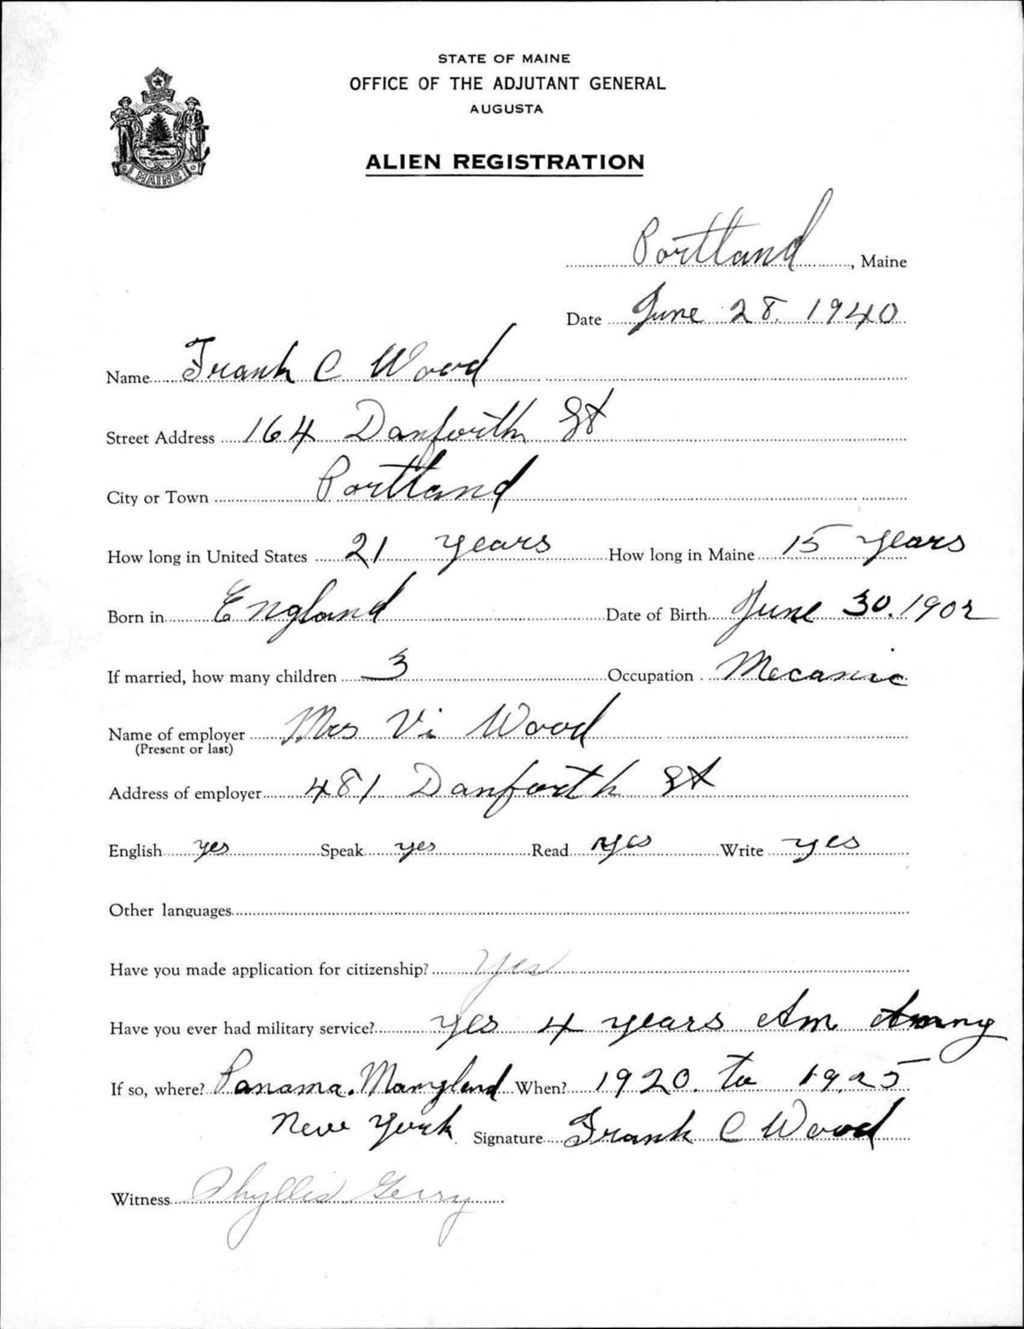 STATE OF MAINE
OFFICE OF THE ADJUTANT GENERAL
AUGUSTA
ALIEN REGISTRATION
MAINE
Portland, Maine
Date June 28. 1940
Name Frank C Wood
Street Address 164 Danforth St
City or Town Portland
How long in United States 21 years How long in Maine 15 years
Born in England Date of Birth June 30. 1902
If married, how many children 3 Occupation Mecanic
Name of employer Mrs Vi Wood
(Present or last)
Address of employer 481 Danforth St
English yes Speak yes Read yes Write yes
Other languages
Have you made application for citizenship? Yes
Have you ever had military service? yes 4 years Am Army
If so, where? Panama. Maryland When? 1920. to 1925
New York Signature Frank C Wood
Witness Phyllis Gerry